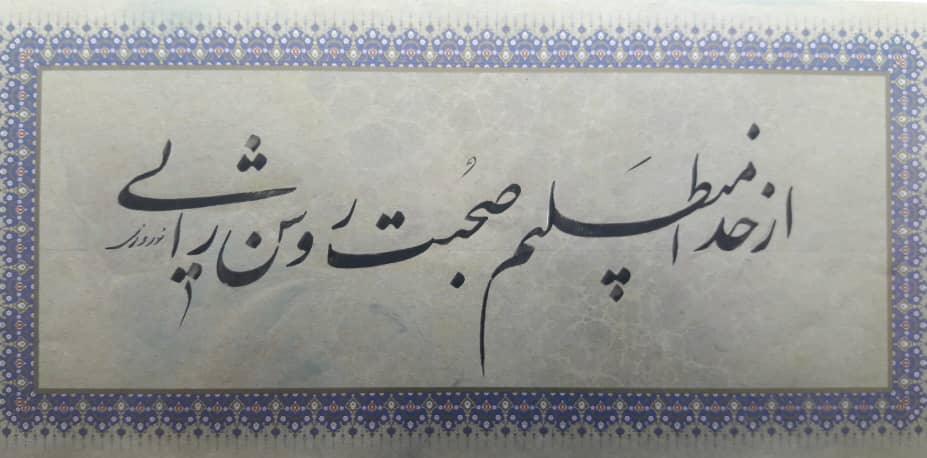 از خدا میطلبم صحبت روشن رایی
نوروزی